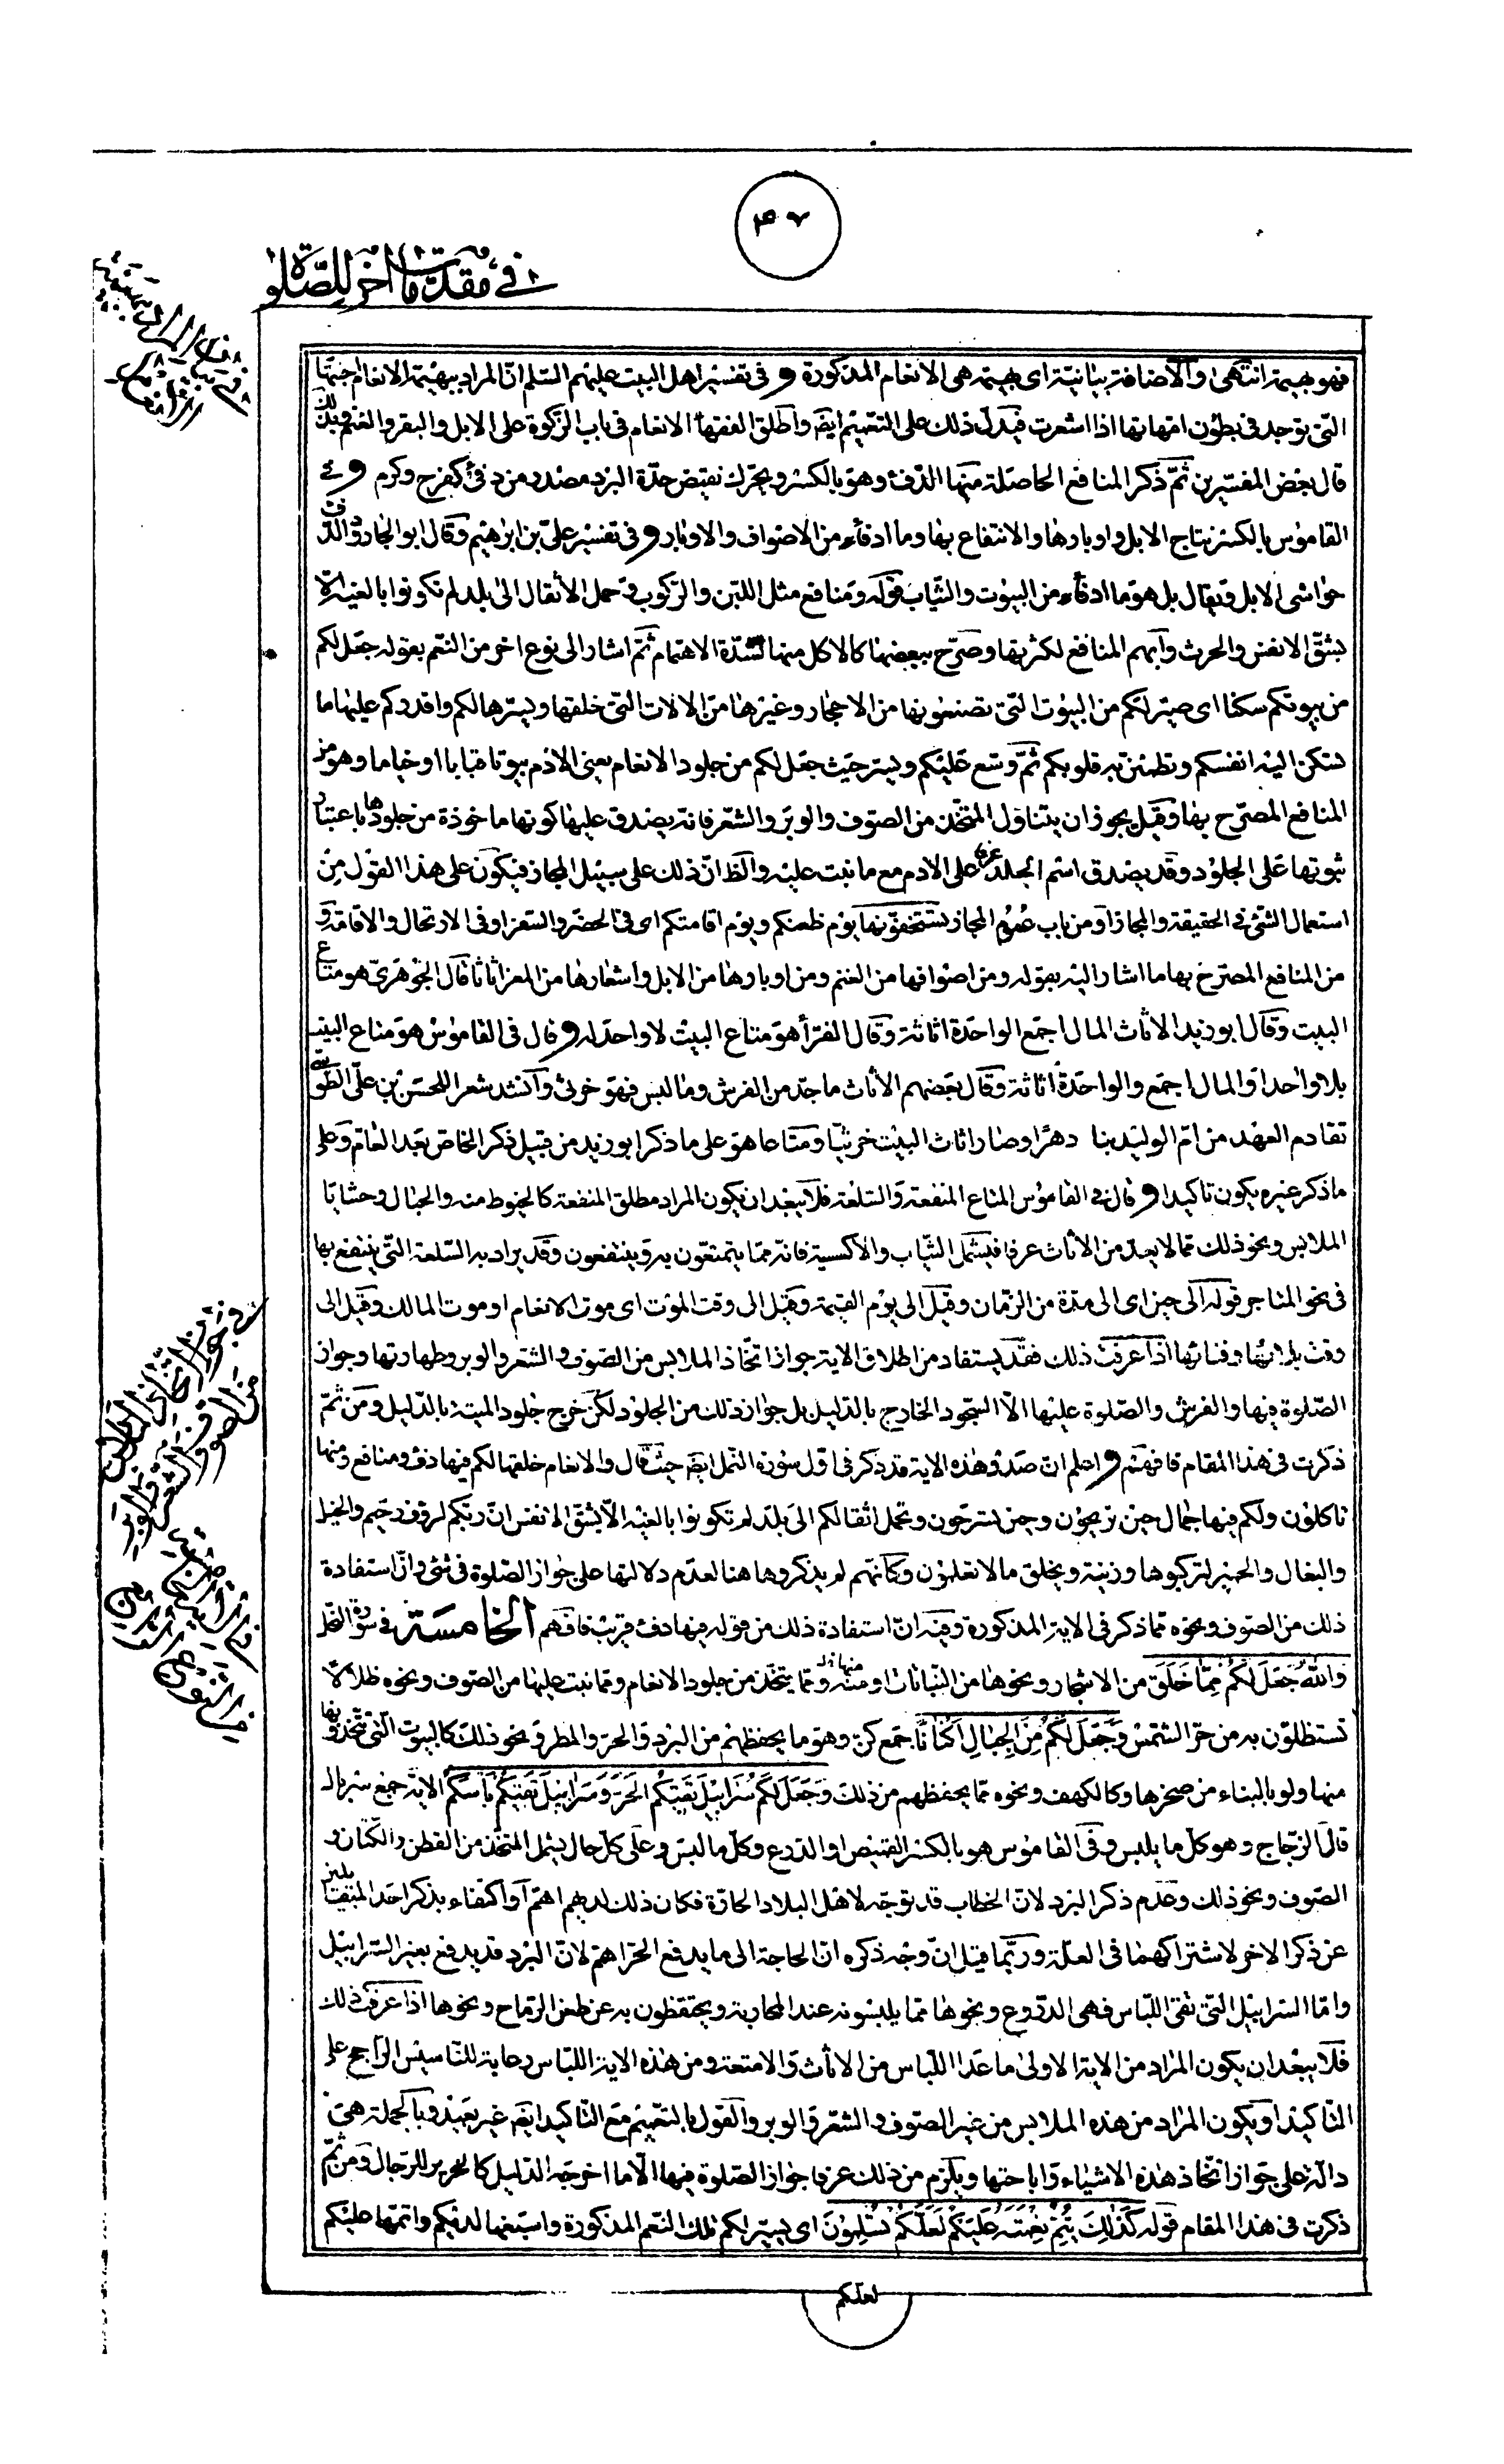 ٤٧
في مقدمات أخر للصلوة
فهو بهيمة انتهى والاضافة بيانية اى بهيمة هى الانعام المذكورة وفى تفسير اهل البيت عليهم السلم ان المراد ببهيمة الانعام اجنتها
التى توجد فى بطون امهاتها اذا اشعرت فيدل ذلك على التعميم ايضه واطلق الفقهاء الانعام فى باب الزكوة على الابل والبقر والغنم وبذلك
قال بعض المفسرين ثم ذكر المنافع الحاصلة منها الدفء وهو بالكسر ويحرك نقيض حدة البرد مصدر من دفئ كفرح وكرم وفى
القاموس بالكسر نتاج الابل واوبارها والانتفاع بها وما ادفأه من الاصواف والاوبار وفى تفسير على بن ابرهيم وقال ابو الجارود الدفئ
حواشى الابل ويقال بل هو ما ادفأه من البيوت والثياب قوله ومنافع مثل اللبن والركوب وحمل الأثقال الى بلد لم تكونوا بالغيه الا
بشق الانفس والحرث وابهم المنافع لكثرتها وصرح ببعضها كالاكل منها لشدة الاهتمام ثم اشار الى نوع اخر من النعم بقوله جعل لكم
من بيوتكم سكنا اى صير لكم من البيوت التى تصنعونها من الاحجار وغيرها من الالات التى خلقها ويسرها لكم واقدركم عليها ما
تسكن اليه انفسكم وتطمئن به قلوبكم ثم وسع عليكم ويسر حيث جعل لكم من جلود الانعام يعنى الادم بيوتا قبابا او خياما وهو من
المنافع المصرح بها وقيل يجوز ان يتناول المتخذ من الصوف والوبر والشعر فانه يصدق عليها كونها ماخوذة من جلودها باعتبار
ثبوتها على الجلود وقد يصدق اسم الجلد عرفا على الادم مع ما نبت عليه والظ ان ذلك على سبيل المجاز فيكون على هذا القول من
استعمال الشئ فى الحقيقة والمجاز او من باب عموم المجاز تستخفونها يوم ظعنكم ويوم اقامتكم اى فى الحضر والسفر او فى الارتحال والاقامة و
من المنافع المصرح بها ما اشار اليه بقوله ومن اصوافها من الغنم ومن اوبارها من الابل واشعارها من المعز اثاثا قال الجوهرى هو متاع
البيت وقال ابو زيد الاثاث المال اجمع الواحدة اثاثة وقال الفرأ هو متاع البيت لا واحد له وقال فى القاموس هو متاع البيت
بلا واحد او المال اجمع والواحدة اثاثة وقال بعضهم الأثاث ما جد من الفرش وما لبس فهو خرثى وانشد شعرا للحسن بن على الطوسى
تقادم العهد من ام الوليد بنا دهرا وصار اثاث البيت خرثيا ومتاعا هو على ما ذكر ابو زيد من قبيل ذكر الخاص بعد العام وعلى
ما ذكر غيره يكون تاكيدا وقال فى القاموس المتاع المنفعة والسلعة فلا يبعد ان يكون المراد مطلق المنفعة كالخيوط منه والحبال وحشايا
الملابس ونحو ذلك مما لا يعد من الأثاث عرفا فيشمل الثياب والاكسية فانه مما يتمتعون به وينتفعون وقد يراد به السلعة التى ينتفع بها
فى نحو المتاجر قوله الى حين اى الى مدة من الزمان وقيل الى يوم القيمة وقيل الى وقت الموت اى موت الانعام او موت المالك وقيل الى
وقت بلائها وفنائها اذا عرفت ذلك فقد يستفاد من اطلاق الاية جواز اتخاذ الملابس من الصوف والشعر والوبر وطهارتها وجواز
الصلوة فيها والفرش والصلوة عليها الا السجود الخارج بالدليل بل جواز ذلك من الجلود لكن خرج جلود الميتة بالدليل ومن ثم
ذكرت فى هذا المقام فافهم واعلم ان صدر هذه الاية قد ذكر فى اول سورة النحل ايضه حيث قال والانعام خلقها لكم فيها دفء ومنافع ومنها
تاكلون ولكم فيها جمال حين تريحون وحين تسرحون وتحمل اثقالكم الى بلد لم تكونوا بالغيه الا بشق الانفس ان ربكم لرؤف رحيم والخيل
والبغال والحمير لتركبوها وزينة ويخلق ما لا تعلمون وكانهم لم يذكروها هنا لعدم دلالتها على جواز الصلوة فى شئ وان استفادة
ذلك من الصوف ونحوه مما ذكر فى الاية المذكورة وفيه ان استفادة ذلك من قوله فيها دفء قريب فافهم الخامسة فى سورة النحل
والله جعل لكم مما خلق من الاشجار ونحوها من النباتات او منه ومما يتخذ من جلود الانعام ومما نبت عليها من الصوف ونحوه ظلالا
تستظلون به من حر الشمس وجعل لكم من الجبال اكنانا جمع كن وهو ما يحفظهم من البرد والحر والمطر ونحو ذلك كالبيوت التى تتخذونها
منها ولو بالبناء من صخرها وكالكهف ونحوه مما يحفظهم من ذلك وجعل لكم سرابيل تقيكم الحر وسرابيل تقيكم باسكم الاية جمع سربال
قال الزجاج وهو كل ما يلبس وفى القاموس هو بالكسر القميص او الدرع وكل ما لبس وعلى كل حال يشمل المتخذ من القطن والكتان و
الصوف ونحو ذلك وعدم ذكر البرد لان الخطاب قد توجه لاهل البلاد الحارة فكان ذلك لديهم اهم او اكتفاء بذكر احد المتقابلين
عن ذكر الاخر لاشتراكهما فى العلة وربما قيل ان وجه ذكره ان الحاجة الى ما يدفع الحر اهم لان البرد قد يدفع بغير السرابيل
واما السرابيل التى تقى الباس فهى الدروع ونحوها مما يلبسونه عند المحاربة ويتحفظون به عن طعن الرماح ونحوها اذا عرفت ذلك
فلا يبعد ان يكون المراد من الاية الاولى ما عدا اللباس من الاثاث والامتعة ومن هذه الاية اللباس رعاية للتاسيس الراجح على
التاكيد او يكون المراد من هذه الملابس من غير الصوف والشعر والوبر والقول بالتعميم مع التاكيد ايضه غير بعيد وبالجملة هى
دالة على جواز اتخاذ هذه الاشياء واباحتها ويلزم من ذلك عرفا جواز الصلوة فيها الا ما اخرجه الدليل كالحرير للرجال ومن ثم
ذكرت فى هذا المقام قوله كذلك يتم نعمته عليكم لعلكم تسلمون اى يسر لكم تلك النعم المذكورة واسبغها لديكم واتمها عليكم
لعلكم